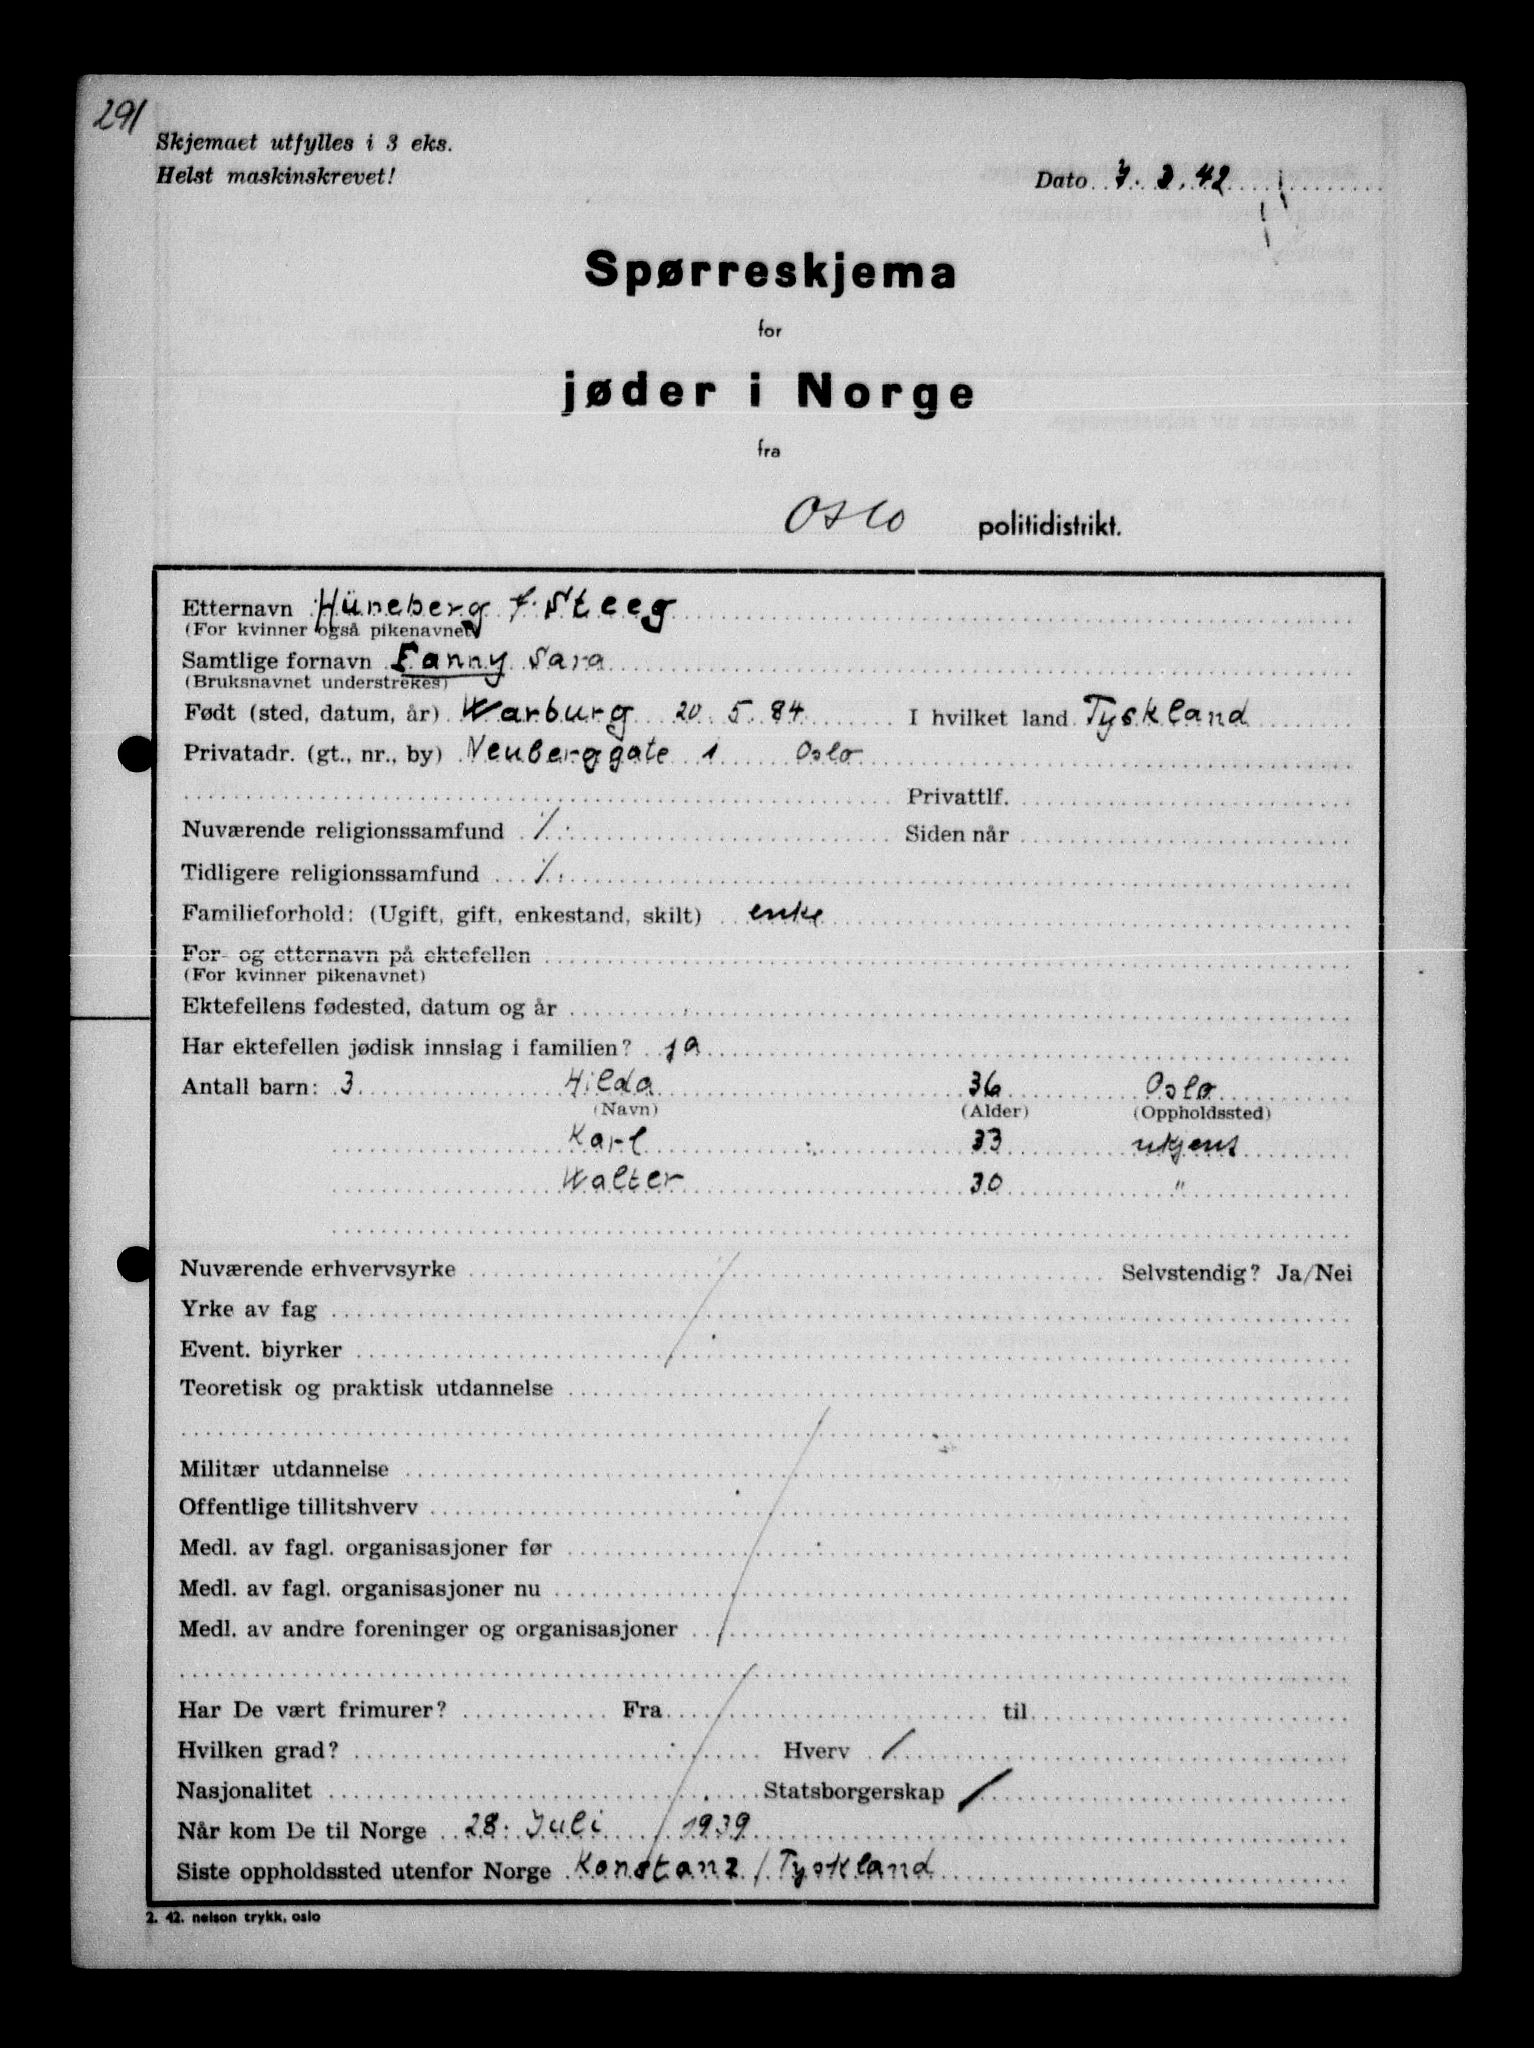 291
Skjemaet utfylles i 3 eks.
Helst maskinskrevet!
Dato 7. 3. 42
Spørreskjema
for
jøder i Norge
fra
Oslo politidistrikt.
Etternavn Hüneberg f. Steeg
(For kvinner også pikenavnet)
Samtlige fornavn Fanny Sara
(Bruksnavnet understrekes)
Født (sted, datum, år) Warburg 20. 5. 84 I hvilket land Tyskland
Privatadr. (gt., nr., by) Neuberggate 1 Oslo
Privattlf.
Nuværende religionssamfund ·/. Siden når
Tidligere religionssamfund ·/.
Familieforhold: (Ugift, gift, enkestand, skilt) enke
For- og etternavn på ektefellen
(For kvinner pikenavnet)
Ektefellens fødested, datum og år
Har ektefellen jødisk innslag i familien? ja
Antall barn: 3 Hilda 36 Oslo
(Navn) (Alder) (Oppholdssted)
Karl 33 ukjent
Walter 30 "
Nuværende erhvervsyrke Selvstendig? Ja/Nei
Yrke av fag
Event. biyrker
Teoretisk og praktisk utdannelse
Militær utdannelse
Offentlige tillitshverv
Medl. av fagl. organisasjoner før
Medl. av fagl. organisasjoner nu
Medl. av andre foreninger og organisasjoner
Har De vært frimurer? Fra til
Hvilken grad? Hverv /
Nasjonalitet Statsborgerskap /
Når kom De til Norge 28. Juli 1939
Siste oppholdssted utenfor Norge Konstanz / Tyskland
2. 42. nelson trykk, oslo